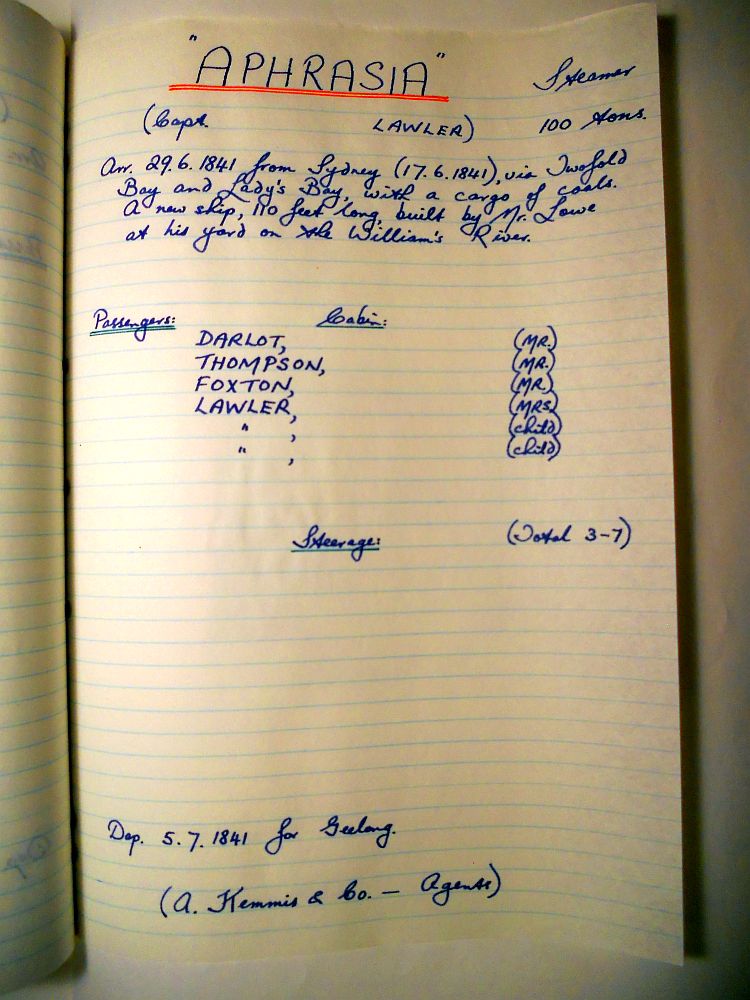 "APHRASIA" Steamer
(Capt. LAWLER) 100 tons.
Arr. 29.6.1841 from Sydney (17.6.1841), via Twofold
Bay and Lady's Bay, with a cargo of coals.
A new ship, 110 feet long, built by Mr. Lowe
at his yard on the William's River.
Passengers: Cabin:
DARLOT, (MR.)
THOMPSON, (MR.)
FOXTON, (MR.)
LAWLER, (MRS.)
" , (child)
" , (child)
Steerage: (Total 3-7)
Dep. 5.7.1841 for Geelong.
(A. Kemmis & Co. — Agents)